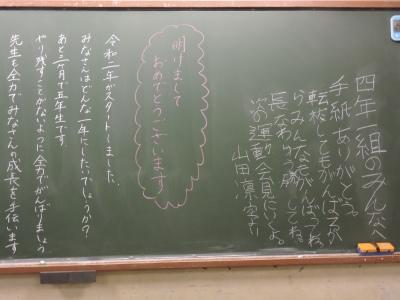 四年一組のみんなへ
手紙ありがとう。
転校してもがんばるか
らみんなもがんばってね。
長なわも勝してね。
次の運動会見にいくよ。
山田
明けまして
おめでとうございます
令和二年がスタートしました。
みなさんはどんな一年にしたいでしょうか？
あと三ヶ月で五年生です
やり残すことがないように全力でがんばりましょう
先生も全力でみなさんの成長を手伝います